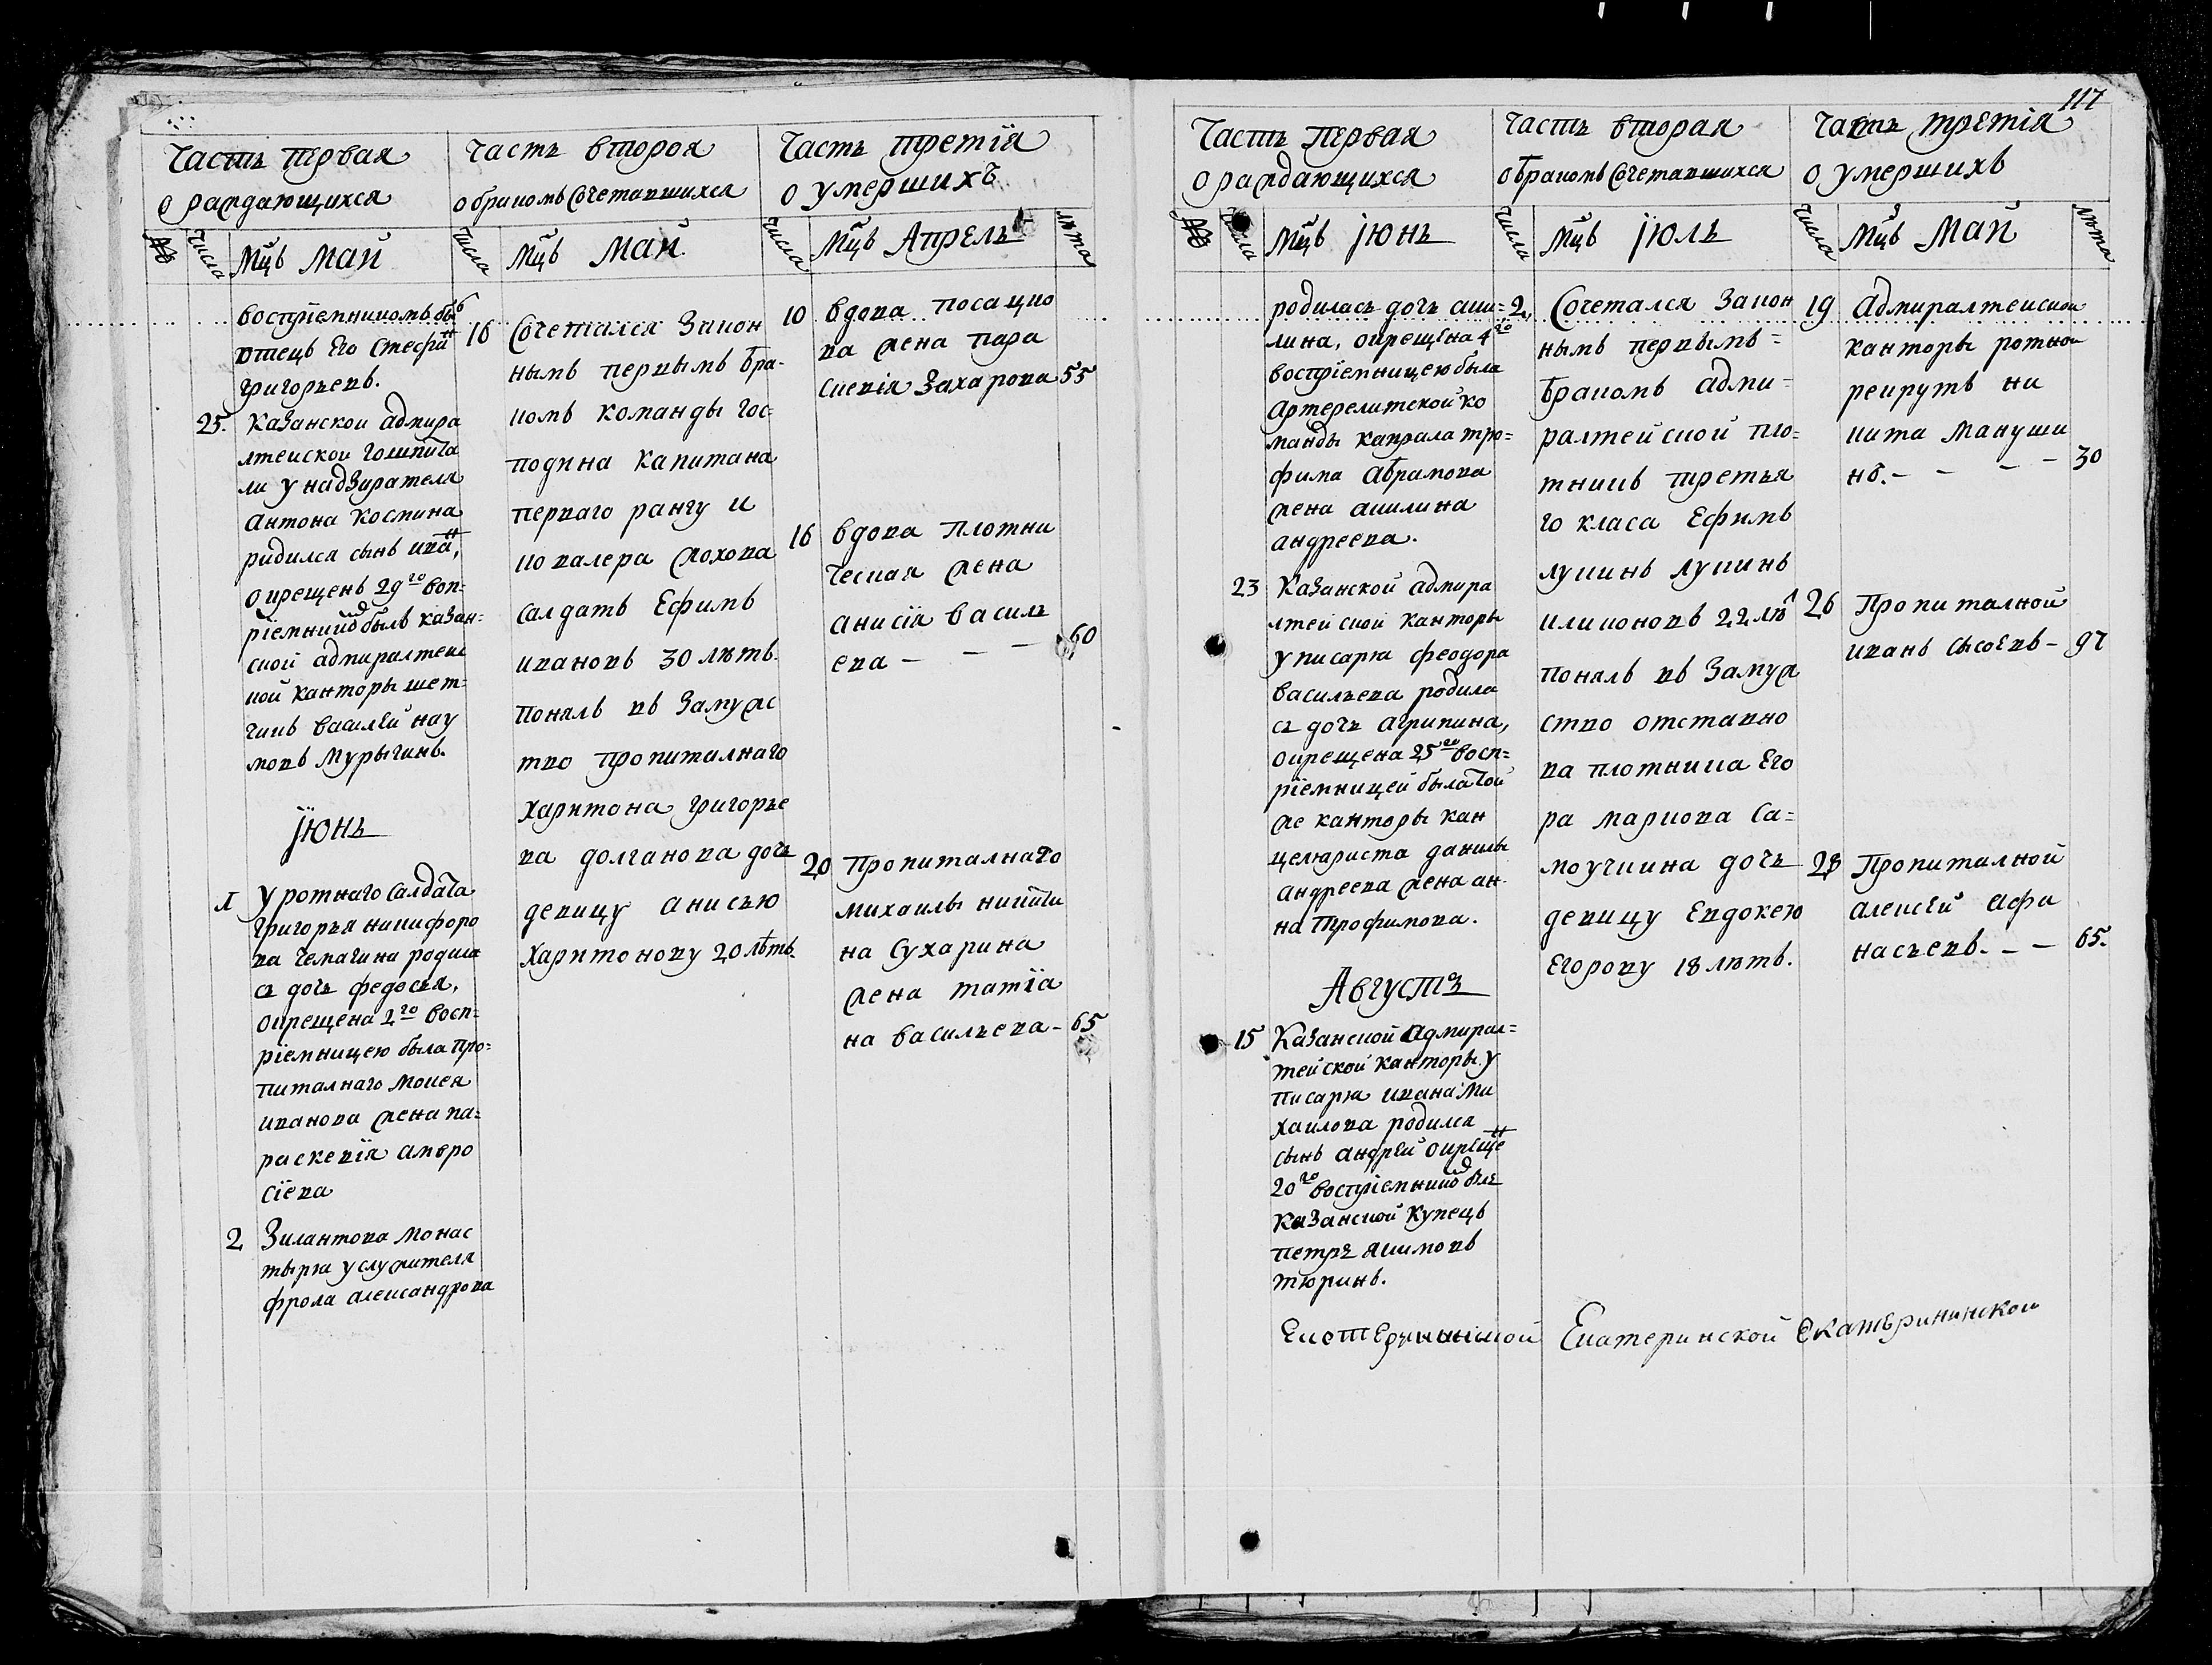 117
Часть первая
о раждающихся
№
числа
Мцъ Май
восприемникомъ бы
отецъ Его Стефан
григорьевъ.
25. Казанской адмира
лтеиской гошпита
ли у надзирателя
Антона Космина
родился сынъ ива,
окрещенъ 29го восп=
риемникъ былъ казан=
ской адмиралтеис
кой канторы шет=
чикъ василей нау
мовъ Мурыгинъ.
Июнь
1 у ротнаго салдата
григорья никифоро
ва Чемагина родила
сь дочь федосья,
окрещена 2го восп=
риемницею была про=
питалнаго Мокея
иванова жена па=
раскевїя амвро
сїева
2 Зилантова Монас
тыря у служителя
фрола александрова
Часть вторая
о бракомъ Сочетавшихся
числа
Мцъ Май
16 Сочетался Закон
нымъ первымъ бра=
комъ команды гос=
подина капитана
перваго рангу и
кавалера жохова
салдатъ Ефимъ
ивановъ 30 лѣтъ.
понялъ въ Замужс
тво пропиталнаго
харитона григорье
ва долганова дочь
девицу анисью
харитонову 20 лѣтъ.
Часть третїя
о умершихъ
числа
Мцъ Апрель
лѣта
10 вдова посацко
ва жена пара
скевїя Захарова 55
16 вдова плотни
ческая жена
анисїя василь
ева - - - 60
20 пропиталнаго
михаилы никити
на сухарина
жена татїа
на васильева - 65
Часть первая
о раждающихся
№
числа
Мцъ Июнь
родилась дочь аки=
лина, окрещена 4го
восприемницею была
артерелитской ко
манды капрала тро=
фима абрамова
жена акилина
андреева.
23 Казанской адмира
лтейской канторы
у писаря феодора
васильева родила
сь дочь агрипина,
окрещена 25го восп=
риемницей была той
же канторы кан
целяриста данилы
андреева жена ан
на Трофимова.
Августъ
15 Казанской Адмирал=
тейской канторы у
писаря ивана Ми
хаилова родился
сынъ андрей окреще
20го восприемникъ былъ
казанской купецъ
петръ якимовъ
тюринъ.
Часть вторая
о бракомъ Сочетавшихся
числа
Мцъ Июль
2 Сочетался Закон
нымъ первымъ=
бракомъ адми=
ралтейской пло=
тникъ третья
го класа Ефимъ
лукинъ лукинъ
илионовъ 22 лѣ
понялъ въ Замуж
ство отставно
ва плотника Его
ра маркова са=
моучкина дочь
девицу Евдокею
Егорову 18 лѣтъ.
Часть третїя
о умершихъ
числа
Мцъ Май
лѣта
19 Адмиралтеиской
канторы ротной
рекрутъ ни
кита Мануши
нъ. - - - - 30
26 Пропиталной
иванъ сысоевъ - 97
28 Пропиталной
алексей афа
насьевъ. - - 65.
Екатерининской Екатеринской Екатерининской